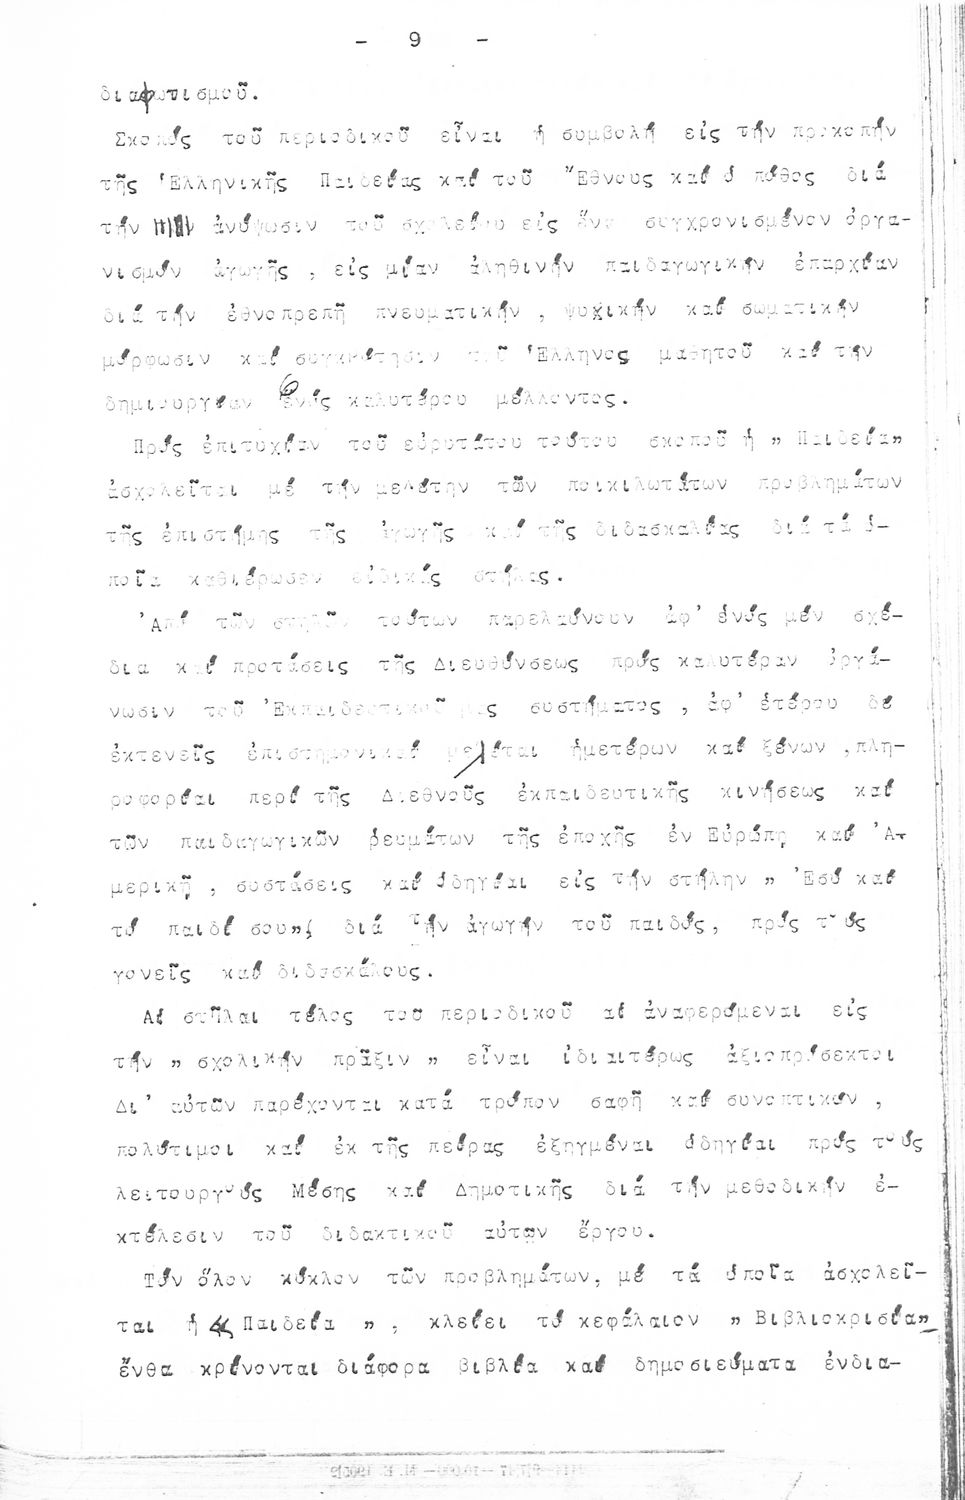 - 9 -
διαφωτισμοῦ.
Σκοπός τοῦ περιοδικοῦ εἶναι ἡ συμβολή εἰς τήν προκοπήν
τῆς Ἑλληνικῆς Παιδείας καί τοῦ Ἔθνους καί ὁ πόθος διά
τήν ἀνύψωσιν τοῦ σχολείου εἰς ἕνα συγχρονισμένον ὀργα-
νισμόν ἀγωγῆς , εἰς μίαν ἀληθινήν παιδαγωγικήν ἐπαρχίαν
διά τήν ἐθνοπρεπῆ πνευματικήν , ψυχικήν καί σωματικήν
μόρφωσιν καί συγκρότησιν τοῦ Ἕλληνος μαθητοῦ καί την
δημιουργίαν ἑνός καλυτέρου μέλλοντος.
Πρός ἐπιτυχίαν τοῦ εὐρυτάτου τούτου σκοποῦ ἡ „ Παιδεία„
ἀσχολεῖται μέ τήν μελέτην τῶν ποικιλωτάτων προβλημάτων
τῆς ἐπιστήμης τῆς ἀγωγῆς καί τῆς διδασκαλίας διά τά ὁ-
ποῖα καθιέρωσεν εἰδικάς στήλας.
Ἀπό τῶν στηλῶν τούτων παρελαύνουν ἀφ' ἑνός μέν σχέ-
δια καί προτάσεις τῆς Διευθύνσεως πρός καλυτέραν ὀργά-
νωσιν τοῦ Ἐκπαιδευτικοῦ μας συστήματος , ἀφ' ἑτέρου δέ
ἐκτενεῖς ἐπιστημονικαί μελέται ἡμετέρων καί ξένων ,πλη-
ροφορίαι περί τῆς Διεθνοῦς ἐκπαιδευτικῆς κινήσεως καί
τῶν παιδαγωγικῶν ῥευμάτων τῆς ἐποχῆς ἐν Εὐρώπῃ καί Ἀ-
μερικῇ , συστάσεις καί ὁδηγίαι εἰς τήν στήλην „ Ἐσύ καί
τό παιδί σου„ διά τήν ἀγωγήν τοῦ παιδός, πρός τούς
γονεῖς καί διδασκάλους.
Αἱ στῆλαι τέλος τοῦ περιοδικοῦ αἱ ἀναφερόμεναι εἰς
τήν „ σχολικήν πρᾶξιν „ εἶναι ἰδιαιτέρως ἀξιοπρόσεκτοι
Δι' αὐτῶν παρέχονται κατά τρόπον σαφῆ καί συνοπτικόν ,
πολύτιμοι καί ἐκ τῆς πείρας ἐξηγμέναι ὁδηγίαι πρός τούς
λειτουργούς Μέσης καί Δημοτικῆς διά τήν μεθοδικήν ἐ-
κτέλεσιν τοῦ διδακτικοῦ αὐτῶν ἔργου.
Τόν ὅλον κύκλον τῶν προβλημάτων, μέ τά ὁποῖα ἀσχολεῖ-
ται ἡ « Παιδεία „ , κλείει τό κεφάλαιον „ Βιβλιοκρισία„
ἔνθα κρίνονται διάφορα βιβλία καί δημοσιεύματα ἐνδια-